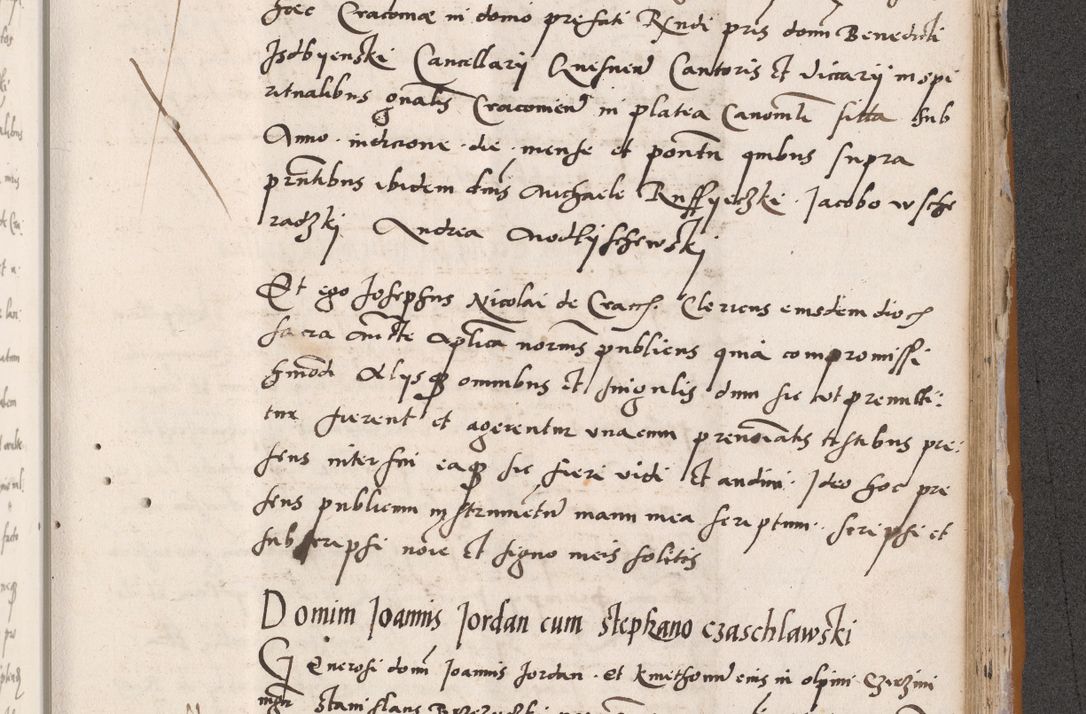 hec Cracoviæ in domo prefati Rndi pris domi Benedicti
Isdbyenski Cancellarij Gnesnen Cantoris et vicarij in spi
ritualibus gnalis Cracovien in platea Canonicali sitta sub
Anno indicione die mense et pontu quibus supra
prntibus ibidem dnis Michaele Russyeczki Jacobo w sche
radzkj Andrea Modlyschewskj
Et ego Josephus Nicolai de Crac Clericus eiusdem dioc
sacra aucte aplica notarius publicus quia compromissi
hmodi Alijsq omnibus et singulis dum sic ut premitti:
tur fierent et agerentur unacum prenoiatis testibus pre:
sens interfui eaq sic fieri vidi et audivi Ideo hoc pre
sens publicum instrumetu manu mea scriptum scripsi et
subscripsi noie et signo meis solitis
Domini Joannis Jordan cum Stephano czaschlawski
Generosi domi Joannis Jordan et kmethonu eius in olpini Czirzini
mgr Stanislaus Brzezyczki